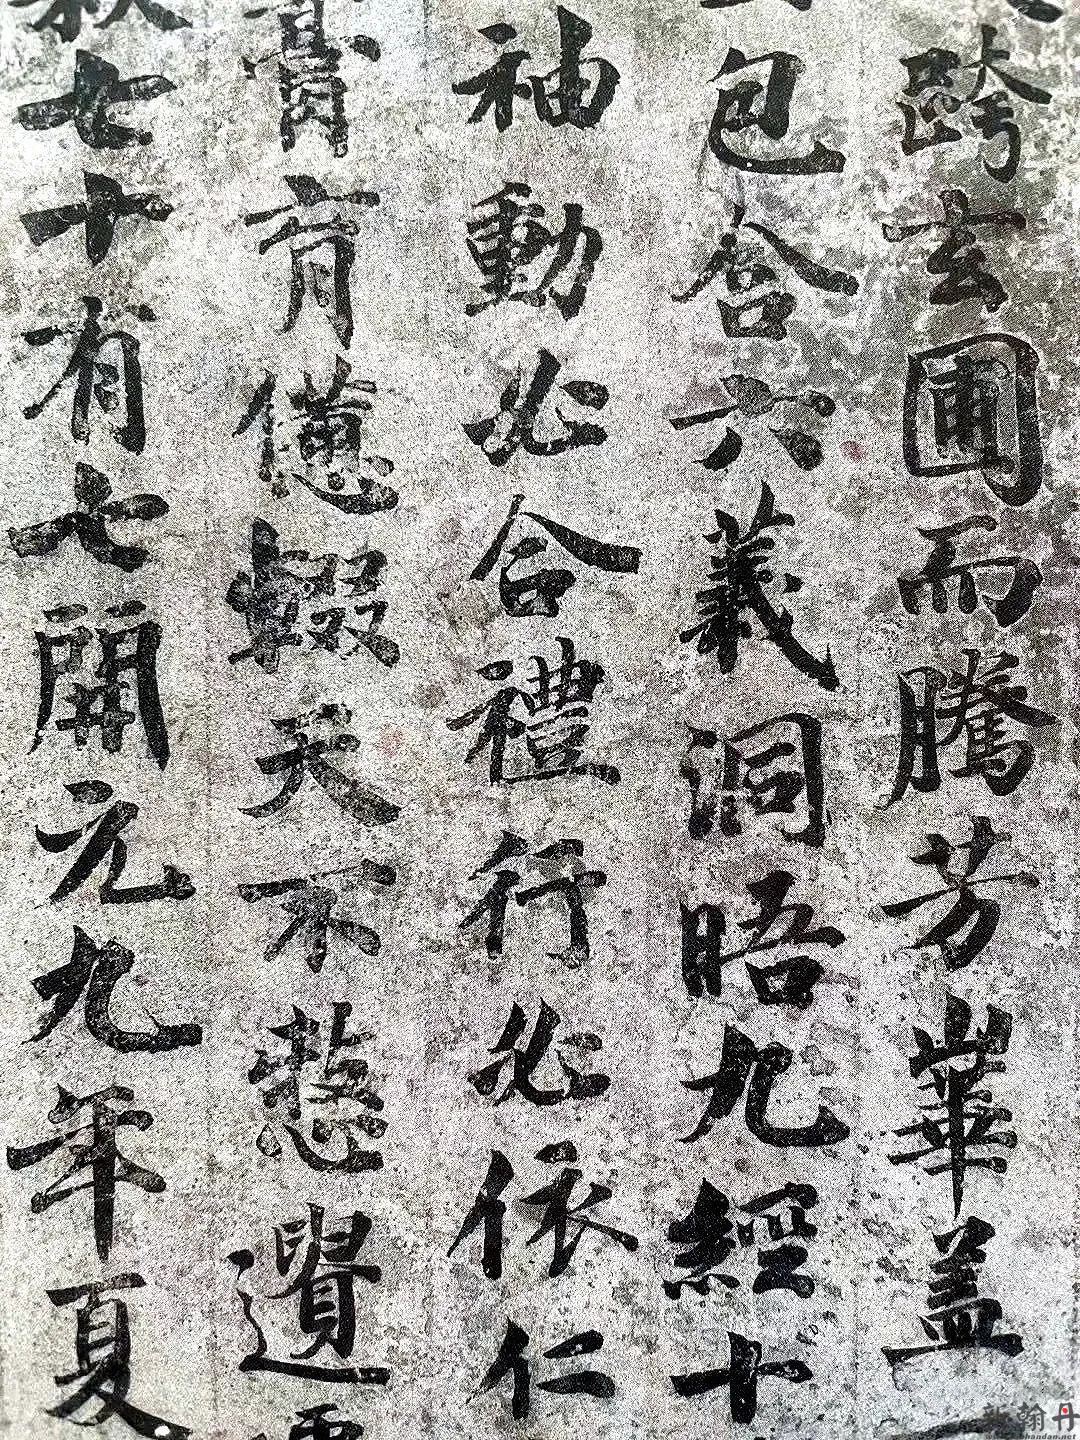 跨玄圃而騰芳華蓋
包含六義洞晤九經十
袖動必合禮行必依仁
膏肓僾輟天不慭遺
秋七十有七開元九年夏
翰丹